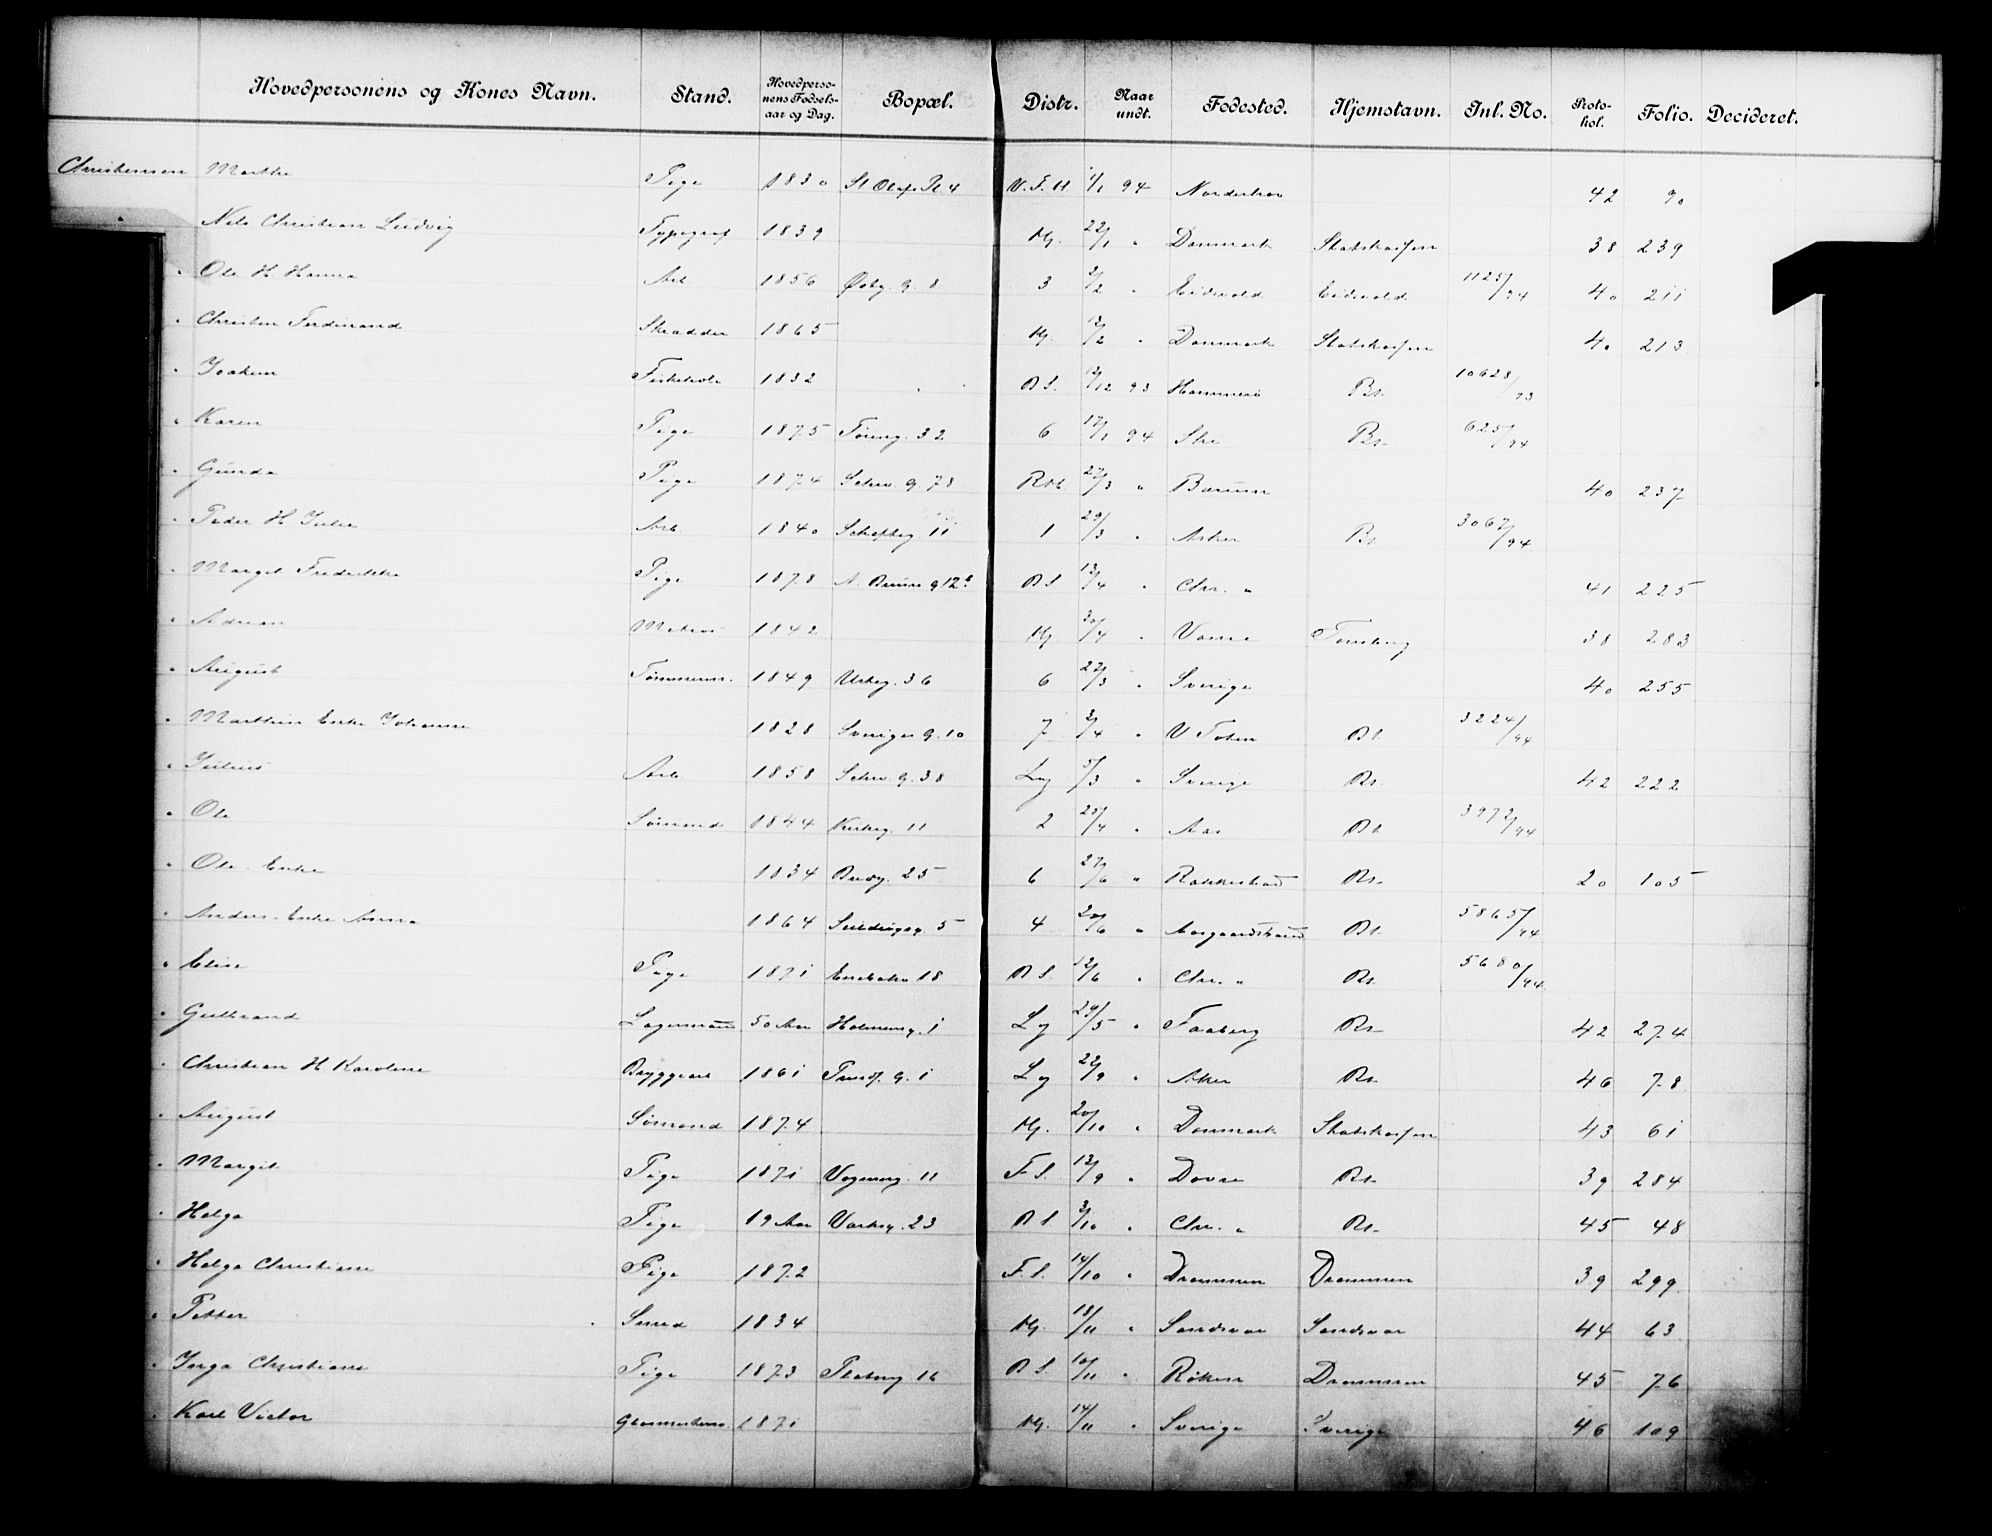 Hovedpersonens og Kones Navn. Stand. Hovedpersonens Fødselsaar og Dag. Bopæl. Distr. Naar undt. Fødested. Hjemstavn. Inl. No. Protokol. Folio. Decideret.
Christensen Marthe Pige 1830 St Olafs Pl 4 V.F.H. 1/1 94 Norderhov 42 90
Nils Christian Ludvig Typograf 1839 Mg. 22/1 " Danmark Statskassen 38 239
" Ole H Hanna Arb 1856 Øvbg. g. 8 3 2/2 " Eidsvold Eidsvold 1125/94 40 211
" Christen Ferdinand Skrædder 1865 Mg. 12/2 " Danmark Statskassen 40 213
" Joakim 1832 B S. 12/12 93 Hammerø Bs. 10628/93
" Karen Pige 1875 Tøieng. 32 6 17/1 94 Ski Bs. 625/94
" Gunda Pige 1874 Schw. g. 78 Rst. 27/3 " Bærum 40 237
" Peder H Julie Arb 1840 11 1 29/3 " Asker Bs 3067/94
" Margit Fredrikke Pige 1878 A. Bruns g 12 B S 13/4 " Chr. " 41 225
" Adrian Matros 1842 Mg 30/4 " Tønsberg 38 283
" August Tømmerm. 1849 Urteg. 36 6 27/3 " Sverige 40 255
" Marthin Enke Johanne 1828 Sverges g. 10 7 2/4 " V Toten Bs. 3224/94
" Julius Arb 1858 Schw. g. 38 Lg 5/3 " Sverige Bs. 42 222
" Ole Sømand 1844 Kirkeg. 11 2 25/4 " Aas Bs 3972/94
" Ole. Enke 1834 Bredg. 25 6 27/6 " Rakkestad Bs. 20 105
" Anders. Enke Anna 1864 5 4 20/6 " Aasgaardstrand Bs. 5865/94
" Elise Pige 1871 18 B S. 12/6 " Chr. " Bs. 5680/94
" Gulbrand Lagermand 50 Aar Holmensg. 1 Lg 29/5 " Faaberg Bs. 42 274
" Christian H Karoline Bryggearb 1861 Trondj. g. 1 Lg 22/9 " Aker Bs. 46 78
" August Sømand 1874 Mg. 20/10 " Danmark Statskassen 43 61
" Margit Pige 1871 Vognmg. 11 F S. 12/9 " Dovre Bs. 39 284
" Helga Pige 19 Aar 23 B S 3/10 " Chr. " Bs. 45 48
" Helga Christiane Pige 1872 F. S. 14/10 " Drammen Drammen 39 299
" Petter Smed 1834 Mg. 18/11 " Sandsvær Sandsvær 44 63
" Inga Christiane Pige 1873 16 B S. 10/11 " Røken Drammen 45 76
" Karl Victor 1871 Mg. 14/11 " Sverige Sverige 46 109